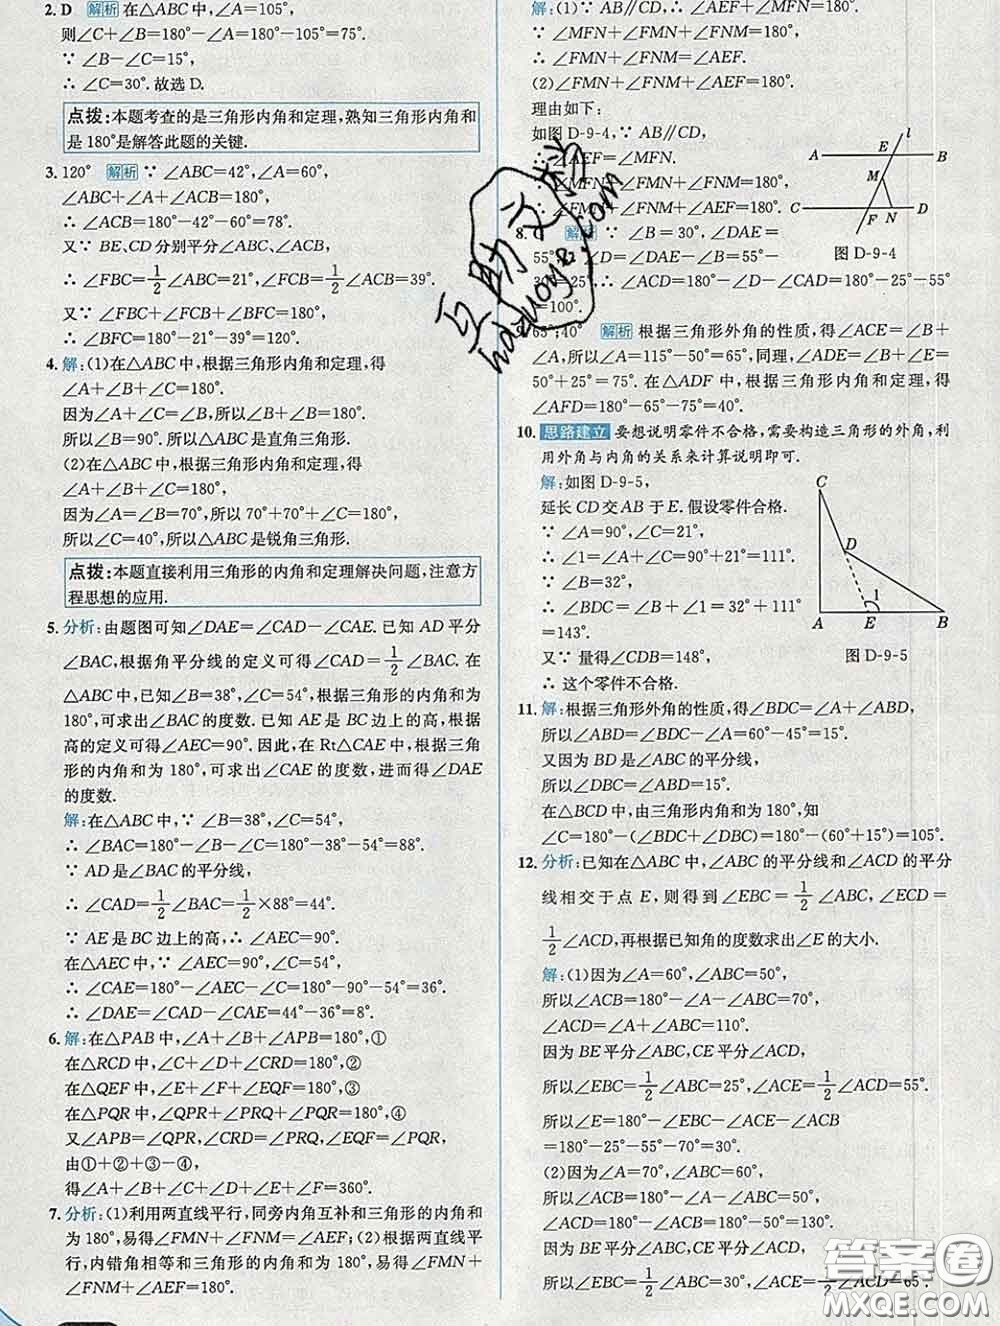 2. D 解析 在△ABC中，根据三角形内角和定理，
则∠C＋∠B＝180°－∠A＝180°－105°＝75°.
∵ ∠B－∠C＝15°，
∴ ∠C＝30°. 故选 D.
点拨：本题考查的是三角形内角和定理，熟知三角形内角和
是180°是解答此题的关键.
3. 120° 解析 ∵ ∠ABC＝42°，∠A＝60°，
∠ABC＋∠A＋∠ACB＝180°，
∴ ∠ACB＝180°－42°－60°＝78°.
又∵ BE、CD 分别平分∠ABC、∠ACB，
∴ ∠FBC＝1/2∠ABC＝21°，∠FCB＝1/2∠ACB＝39°.
又∵ ∠BFC＋∠FBC＋∠FCB＝180°，
∴ ∠BFC＝180°－21°－39°＝120°.
4. 解：(1)在△ABC中，根据三角形内角和定理，得
∠A＋∠B＋∠C＝180°.
因为∠A＋∠C＝∠B，所以∠B＋∠B＝180°.
所以∠B＝90°. 所以△ABC 是直角三角形.
(2)在△ABC中，根据三角形内角和定理，得
∠A＋∠B＋∠C＝180°，
因为∠A＝∠B＝70°，所以70°＋70°＋∠C＝180°，
所以∠C＝40°，所以△ABC 是锐角三角形.
点拨：本题直接利用三角形的内角和定理解决问题，注意方
程思想的应用.
5. 分析：由题图可知∠DAE＝∠CAD－∠CAE. 已知 AD 平分
∠BAC，根据角平分线的定义可得∠CAD＝1/2∠BAC. 在
△ABC中，已知∠B＝38°，∠C＝54°，根据三角形的内角和为
180°，可求出∠BAC 的度数. 已知 AE 是 BC 边上的高，根据
高的定义可得∠AEC＝90°. 因此，在 Rt△CAE 中，根据三角
形的内角和为 180°，可求出∠CAE 的度数，进而得∠DAE
的度数.
解：在△ABC中，∵ ∠B＝38°，∠C＝54°，
∴ ∠BAC＝180°－∠B－∠C＝180°－38°－54°＝88°.
∵ AD 是∠BAC 的平分线，
∴ ∠CAD＝1/2∠BAC＝1/2×88°＝44°.
∵ AE 是 BC 边上的高，∴ ∠AEC＝90°.
在△AEC中，∵ ∠AEC＝90°，∠C＝54°，
∴ ∠CAE＝180°－∠AEC－∠C＝180°－90°－54°＝36°.
∴ ∠DAE＝∠CAD－∠CAE＝44°－36°＝8°.
6. 解：在△PAB中，∠A＋∠B＋∠APB＝180°，①
在△RCD中，∠C＋∠D＋∠CRD＝180°，②
在△QEF中，∠E＋∠F＋∠EQF＝180°，③
在△PQR中，∠QPR＋∠PRQ＋∠PQR＝180°，④
又∠APB＝∠QPR，∠CRD＝∠PRQ，∠EQF＝∠PQR，
由①＋②＋③－④，
得∠A＋∠B＋∠C＋∠D＋∠E＋∠F＝360°.
7. 分析：(1)利用两直线平行，同旁内角互补和三角形的内角和
为180°，易得∠FMN＋∠FNM＝∠AEF；(2)根据两直线平
行，内错角相等和三角形的内角和为 180°，易得∠FMN＋
∠FNM＋∠AEF＝180°.
解：(1)∵ AB∥CD，∴ ∠AEF＋∠MFN＝180°.
∵ ∠MFN＋∠FMN＋∠FNM＝180°，
∴ ∠FMN＋∠FNM＝∠AEF.
(2)∠FMN＋∠FNM＋∠AEF＝180°.
理由如下：
如图 D-9-4，∵ AB∥CD，
∴ ∠AEF＝∠MFN.
∵ ∠MFN＋∠FMN＋∠FNM＝180°，
∴ ∠FMN＋∠FNM＋∠AEF＝180°.
l
E
A
B
M
C
F
N
D
图 D-9-4
8. C 解析 ∵ ∠B＝30°，∠DAE＝
55°，∴ ∠D＝∠DAE－∠B＝55°－
30°＝25°，∴ ∠ACD＝180°－∠D－∠CAD＝180°－25°－55°
＝100°.
9. 65°；40° 解析 根据三角形外角的性质，得∠ACE＝∠B＋
∠A，所以∠A＝115°－50°＝65°，同理，∠ADE＝∠B＋∠E＝
50°＋25°＝75°. 在△ADF 中，根据三角形内角和定理，得
∠AFD＝180°－65°－75°＝40°.
10. 思路建立 要想说明零件不合格，需要构造三角形的外角，利
用外角与内角的关系来计算说明即可.
解：如图 D-9-5，
延长 CD 交 AB 于 E. 假设零件合格.
∵ ∠A＝90°，∠C＝21°，
∴ ∠1＝∠A＋∠C＝90°＋21°＝111°.
∵ ∠B＝32°，
∴ ∠BDC＝∠B＋∠1＝32°＋111°
＝143°.
又∵ 量得∠CDB＝148°，
∴ 这个零件不合格.
C
D
1
A
E
B
图 D-9-5
11. 解：根据三角形外角的性质，得∠BDC＝∠A＋∠ABD，
所以∠ABD＝∠BDC－∠A＝60°－45°＝15°.
又因为 BD 是∠ABC 的平分线，
所以∠DBC＝∠ABD＝15°.
在△BCD中，由三角形内角和为 180°，知
∠C＝180°－(∠BDC＋∠DBC)＝180°－(60°＋15°)＝105°.
12. 分析：已知在△ABC中，∠ABC 的平分线和∠ACD 的平分
线相交于点 E，则得到∠EBC＝1/2∠ABC，∠ECD＝
1/2∠ACD，再根据已知角的度数求出∠E 的大小.
解：(1)因为∠A＝60°，∠ABC＝50°，
所以∠ACB＝180°－∠A－∠ABC＝70°，
∠ACD＝∠A＋∠ABC＝110°.
因为 BE 平分∠ABC，CE 平分∠ACD，
所以∠EBC＝1/2∠ABC＝25°，∠ACE＝1/2∠ACD＝55°.
所以∠E＝180°－∠EBC－∠ACE－∠ACB
＝180°－25°－55°－70°＝30°.
(2)因为∠A＝70°，∠ABC＝60°，
所以∠ACB＝180°－∠A－∠ABC＝50°，
所以∠ACD＝180°－∠ACB＝180°－50°＝130°.
因为 BE 平分∠ABC，CE 平分∠ACD，
所以∠EBC＝1/2∠ABC＝30°，∠ACE＝1/2∠ACD＝65°，
答案圈
MXQE.COM